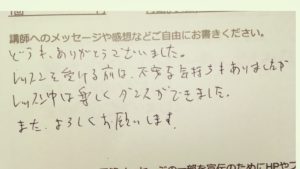 講師へのメッセージや感想などご自由にお書きください。
どうも、ありがとうございました。
レッスンを受ける前は、不安な気持ちもありましたが
レッスン中は楽しくダンスができました。
また、よろしくお願いします。
メッセージの一部を宣伝のためにHPやブ